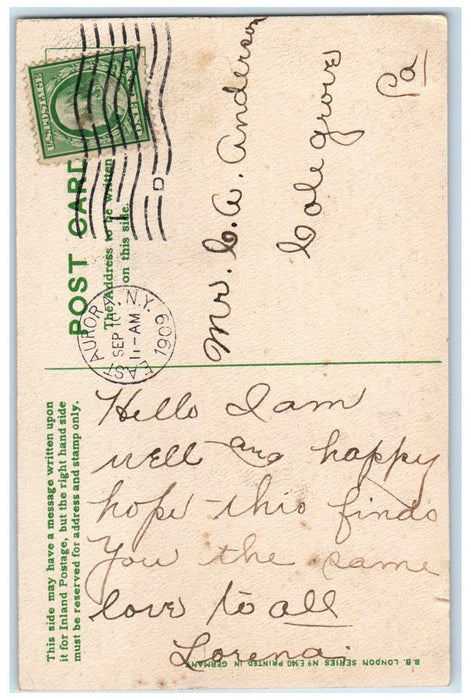 U.S. POSTAGE
ONE CENT
POST CARD
The Address to be written
on this side.
EAST AURORA, N.Y.
SEP 10
11-AM
1909
D
Mr. C. A. Anderson
Colegrove
Pa
This side may have a message written upon
it for Inland Postage, but the right hand side
must be reserved for address and stamp only.
Hello I am
well and happy
hope this finds
You the same
love to all
Lorena.
B. B. LONDON SERIES No E140 PRINTED IN GERMANY